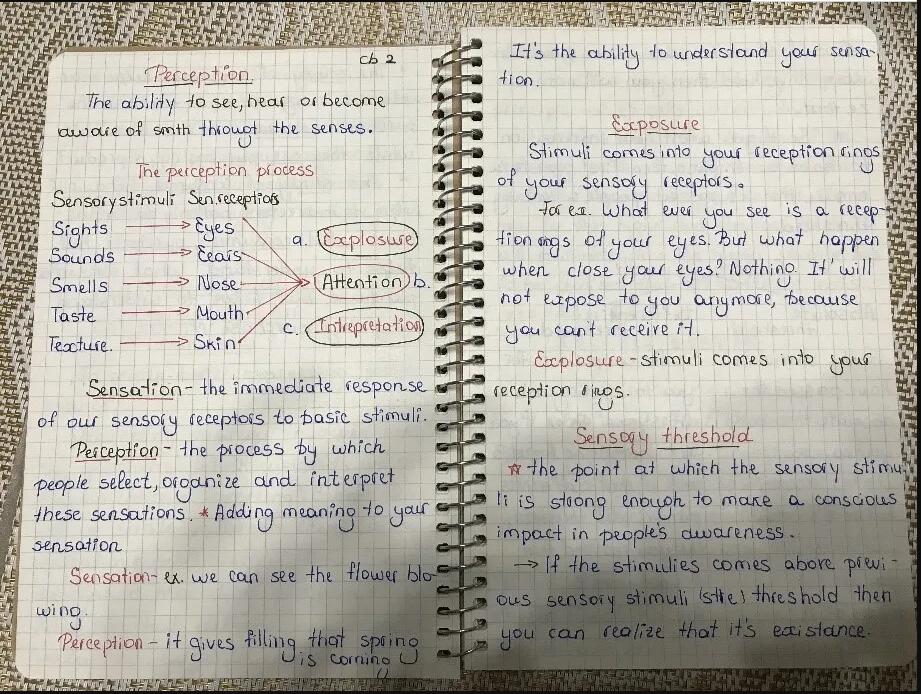 Ch 2
Perception
The ability to see, hear or become
aware of smth througt the senses.
The perception process
Sensory stimuli Sen.receptiors
Sights Eyes
Sounds Eears
Smells Nose
Taste Mouth
Texture. Skin
a. Explosure
Attention b.
c. Intrepretation
Sensation - the immediate response
of our sensory receptors to basic stimuli.
Perception - the process by which
people select, organize and interpret
these sensations. * Adding meaning to your
sensation
Sensation - ex. we can see the flower blo-
wing.
Perception - it gives filling that spring
is coming
It's the ability to understand your sensa-
tion.
Exposure
Stimuli comes into your reception rings
of your sensory receptors.
For ex. What ever you see is a recep-
tion rings of your eyes. But what happen
when close your eyes? Nothing. It' will
not expose to you anymore, because
you can't receive it.
Explosure - stimuli comes into your
reception rings.
Sensogy threshold
☆ the point at which the sensory stimu-
li is strong enough to make a conscious
impact in people's awareness.
→ If the stimulies comes above previ-
ous sensory stimuli threshold then
you can realize that it's existance.